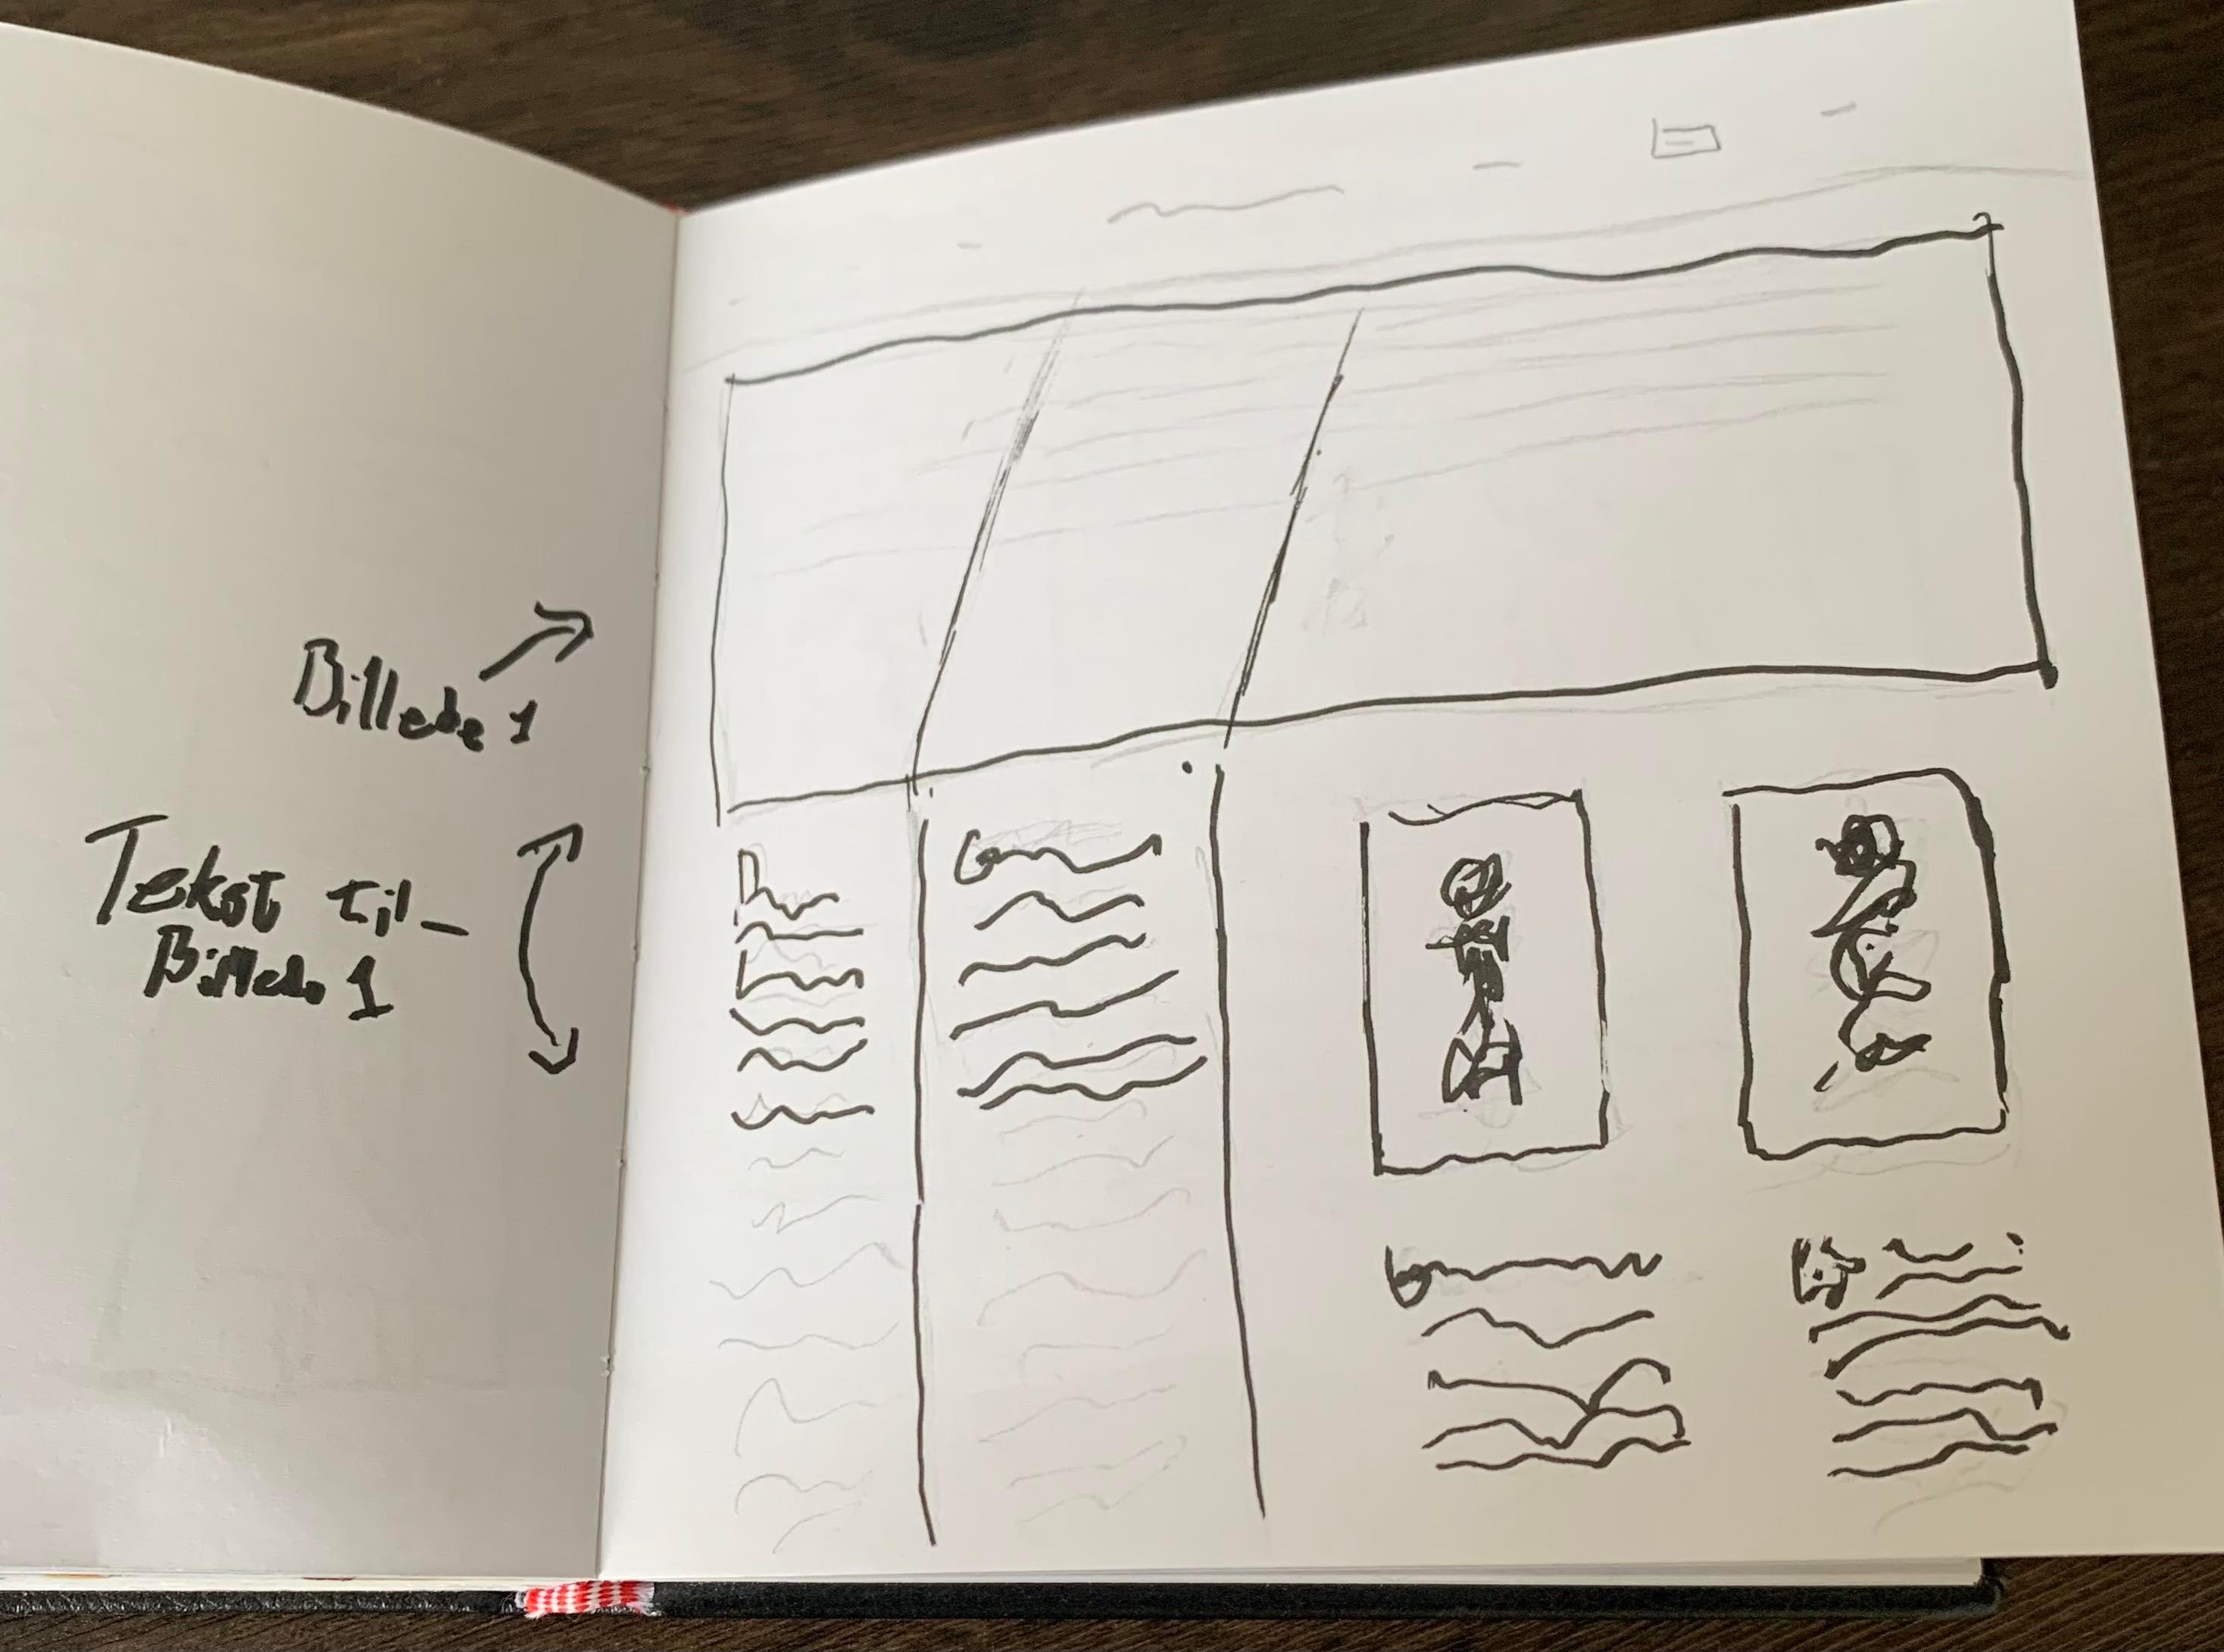 Billede 1
Tekst til-
Billede 1